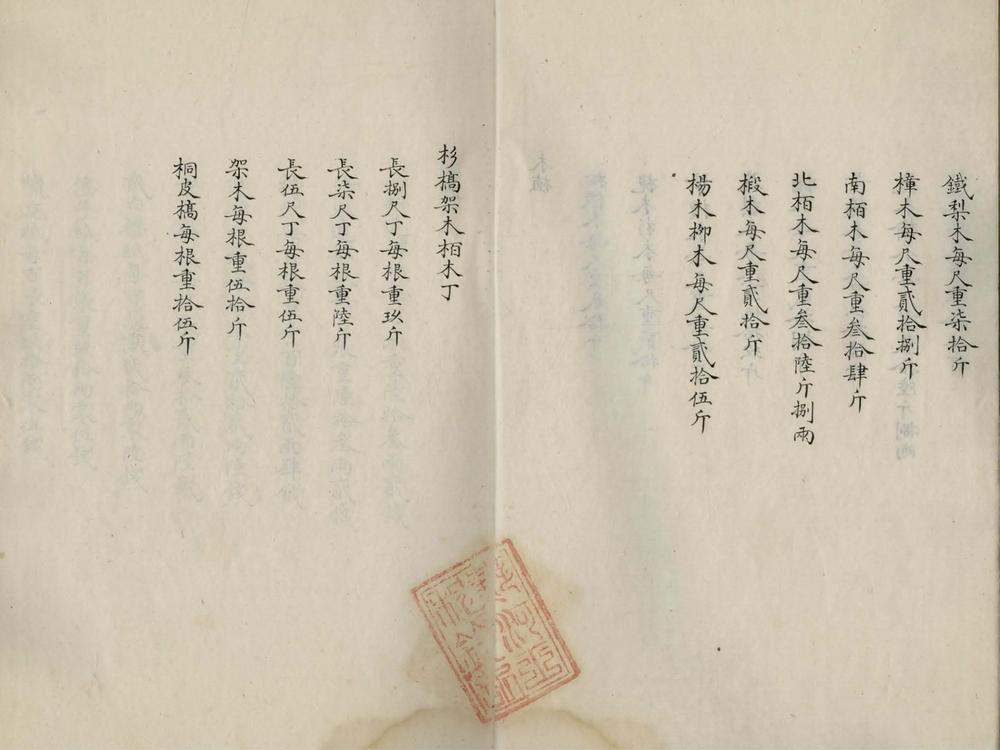 鐵梨木每尺重柒拾斤
樟木每尺重貳拾捌斤
南栢木每尺重叁拾肆斤
北栢木每尺重叁拾陸斤捌兩
椴木每尺重貳拾斤
楊木柳木每尺重貳拾伍斤
杉槁架木栢木丁
長捌尺丁每根重玖斤
長柒尺丁每根重陸斤
長伍尺丁每根重伍斤
架木每根重伍拾斤
桐皮槁每根重拾伍斤